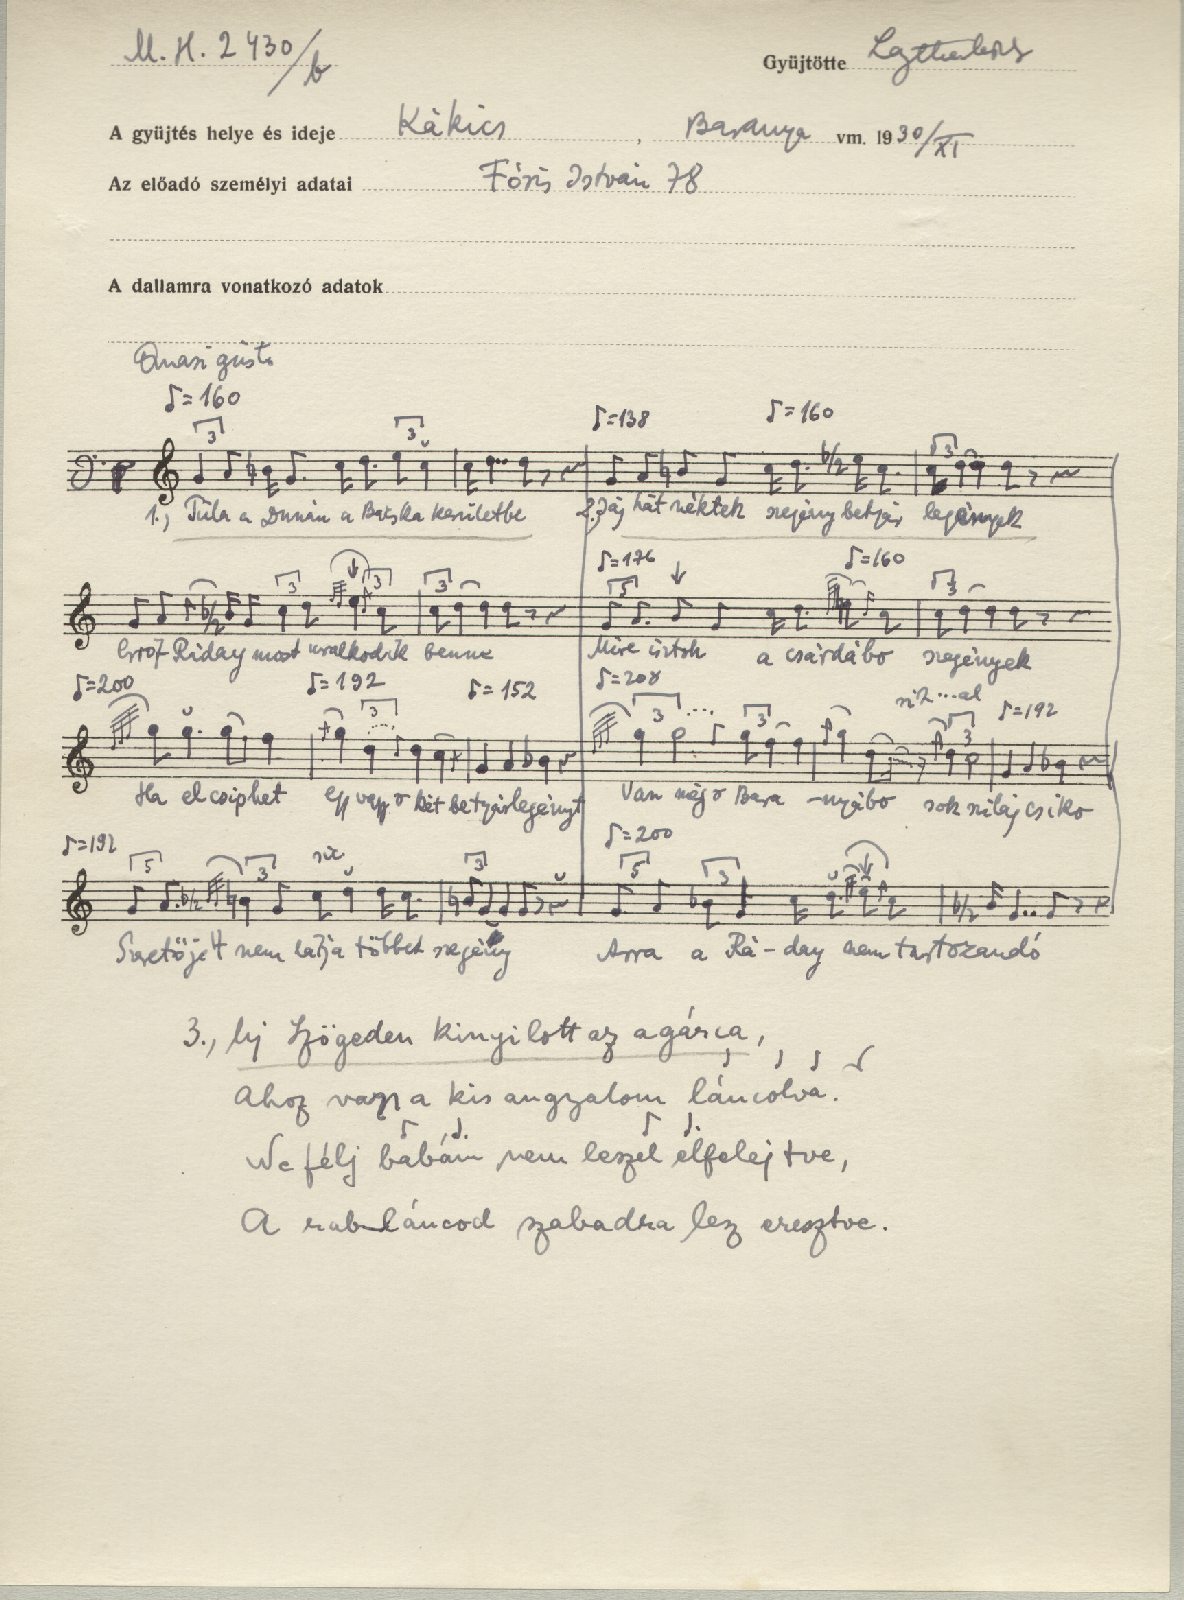 M. H. 2430/b
Gyüjtötte Lajtha
A gyüjtés helye és ideje Kákics, Baranya vm. 1930/XI
Az előadó személyi adatai Fóris István 78
A dallamra vonatkozó adatok
Quasi giusto
♪=160
♪=138 ♪=160
1., Tula a Dunán a Bácska kerületbe 2. Jáj hát néktek szegény betyár legények
♪=176 ♪=160
Gróf Ráday most uralkodik benne Mire űrtök a csárdábo szegények
♪=200 ♪=192 ♪=152 ♪=208 ♪=192
Ha elcsiphet egy vagy két betyárlegényt Van még a Bara-nyábo sok szilaj csikó
♪=192 sic ♪=200
Szeretőjét nem látja többet szegény Arra a Rá-day nem tartozandó
3., Uj Szögeden kinyilott az agárca,
Ahoz van a kis angyalom láncolva.
Ne félj babám nem leszel elfelejtve,
A rabláncod szabadra lez eresztve.